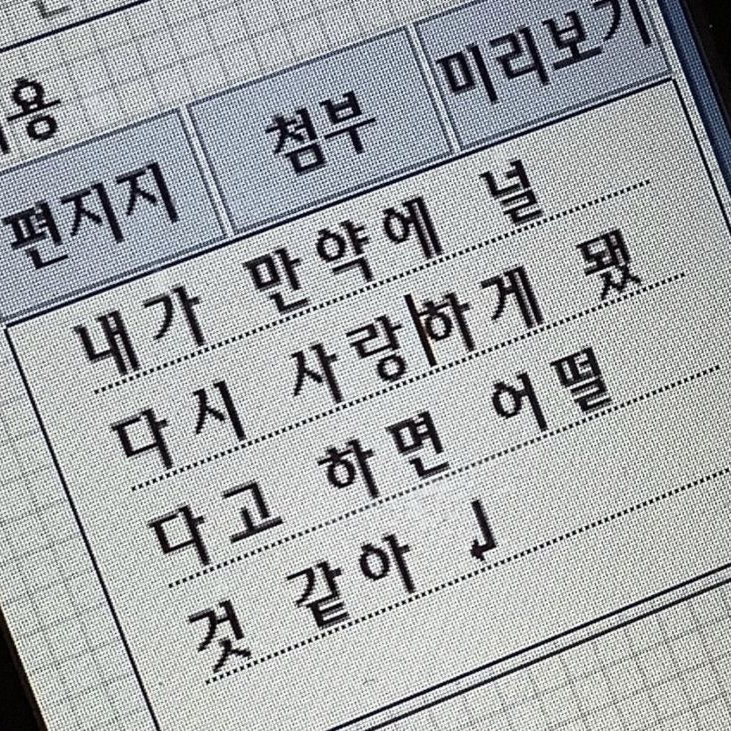 편지지 첨부 미리보기
내가 만약에 널
다시 사랑하게 됐
다고 하면 어떨
것 같아 ↲